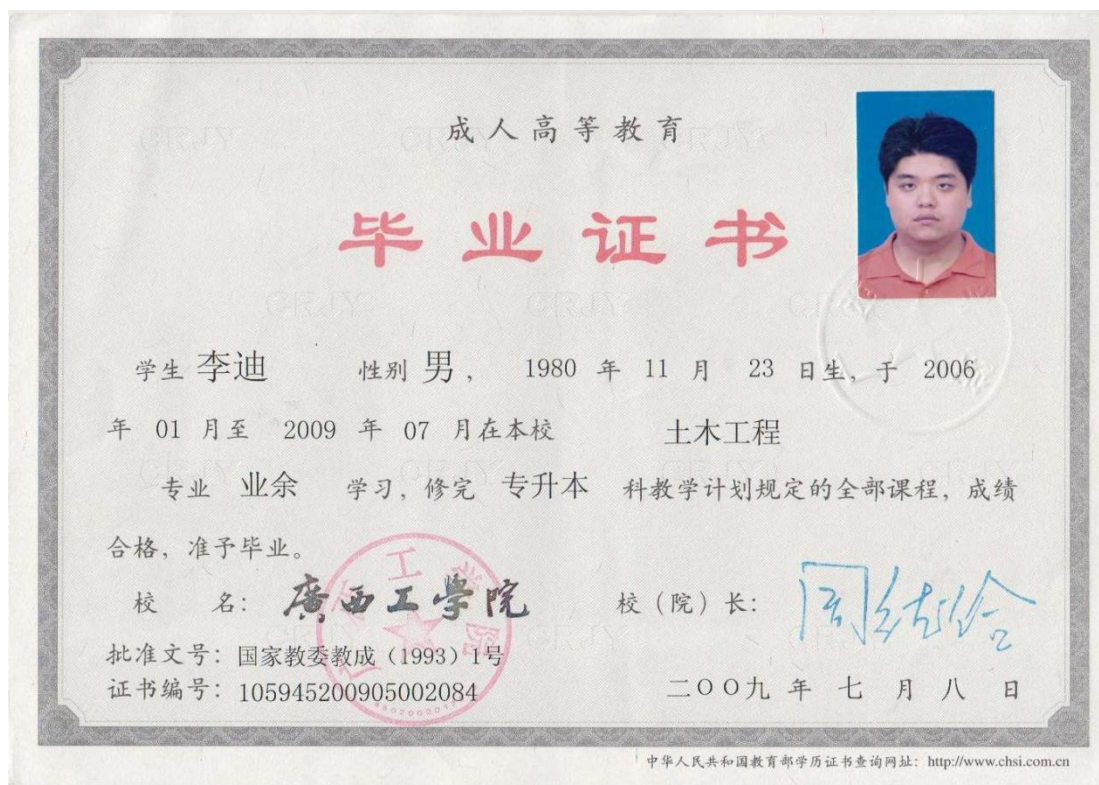 成人高等教育
毕业证书
学生 李迪 性别 男， 1980 年 11 月 23 日生，于 2006
年 01 月至 2009 年 07 月在本校 土木工程
专业 业余 学习，修完 专升本 科教学计划规定的全部课程，成绩
合格，准予毕业。
校 名：廣西工學院 校（院）长：
批准文号：国家教委教成（1993）1号
证书编号：105945200905002084 二〇〇九 年 七 月 八 日
中华人民共和国教育部学历证书查询网址：http://www.chsi.com.cn